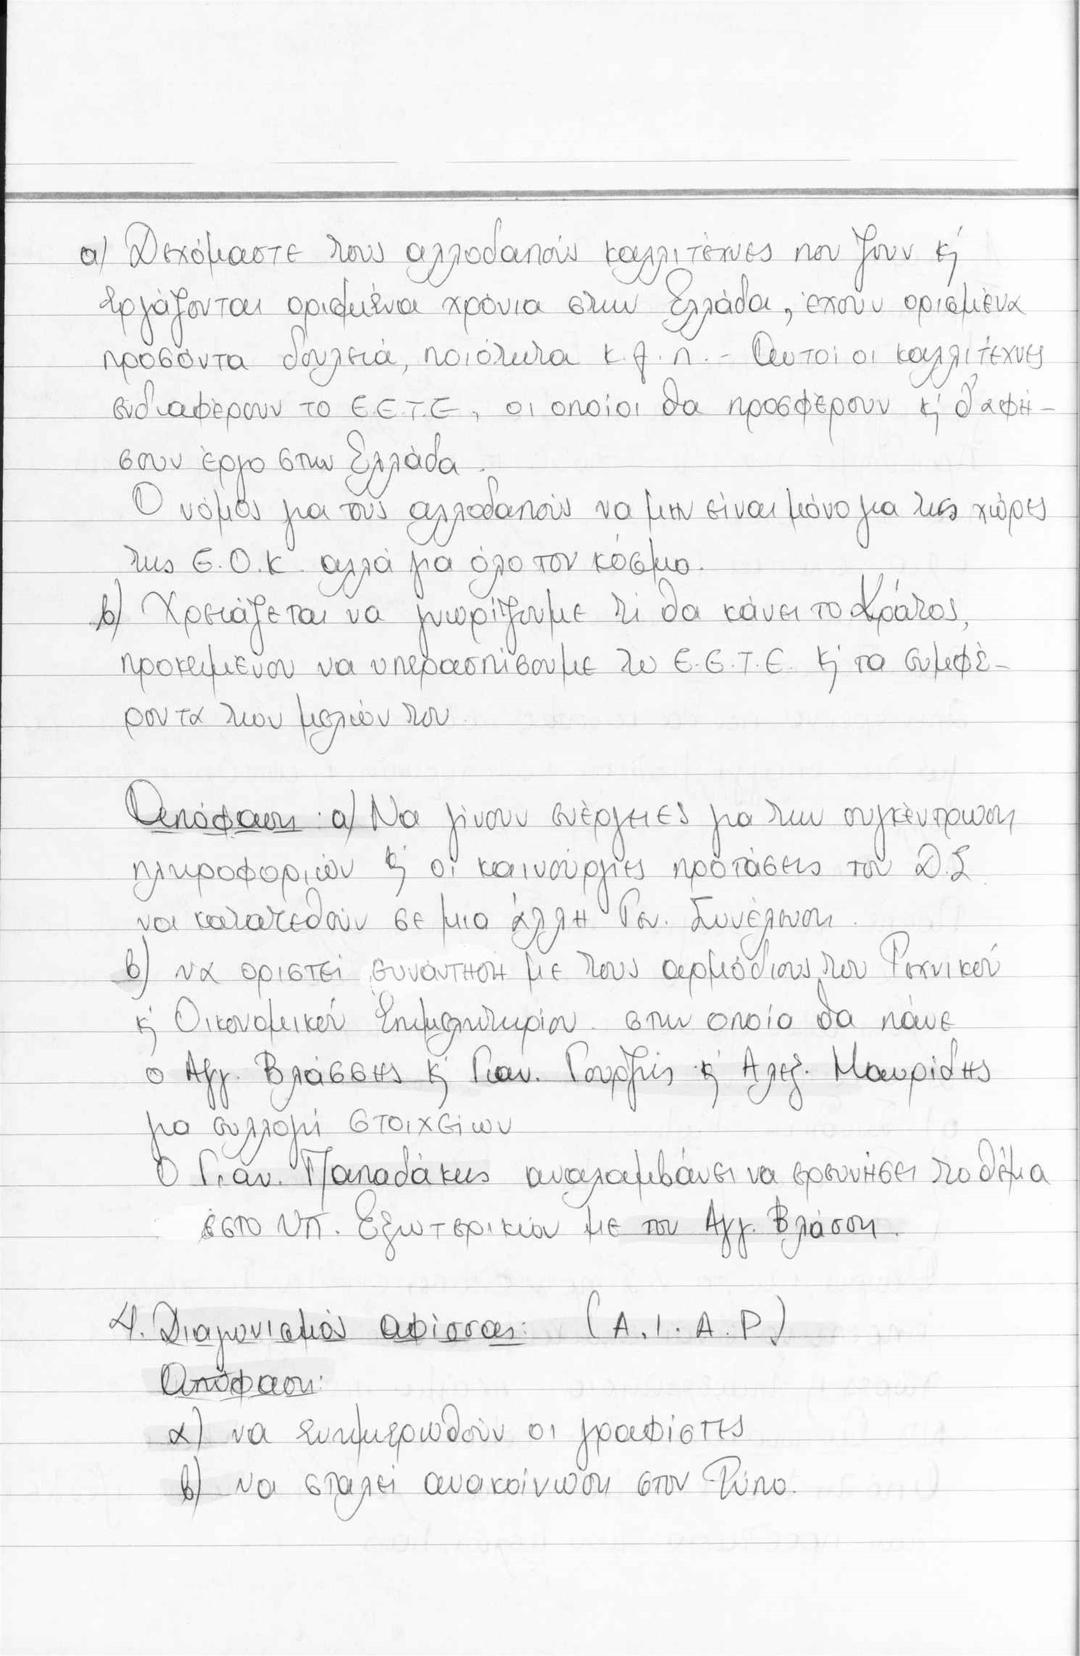 α) Δεχόμαστε τους αλλοδαπούς καλλιτέχνες που ζουν κ'
εργάζονται ορισμένα χρόνια στην Ελλάδα, έχουν ορισμένα
προσόντα δουλειά, ποιότητα κ.λ.π. - Αυτοί οι καλλιτέχνες
ενδιαφέρουν το Ε.Ε.Τ.Ε, οι οποίοι θα προσφέρουν κ' θ'αφή-
σουν έργο στην Ελλάδα.
Ο νόμος για τους αλλοδαπούς να μην είναι μόνο για τις χώρες
της Ε.Ο.Κ. αλλά για όλο τον κόσμο.
β) Χρειάζεται να γνωρίζουμε τι θα κάνει το Κράτος,
προκειμένου να υπερασπίσουμε το Ε.Ε.Τ.Ε. κ' τα συμφέ-
ροντα των μελών του.
Απόφαση: α) Να γίνουν ενέργειες για την συγκέντρωση
πληροφοριών κ' οι καινούργιες προτάσεις του Δ.Σ
να κατατεθούν σε μια άλλη Γεν. Συνέλευση.
β) να οριστεί συνάντηση με τους αρμόδιους του Τεχνικού
κ' Οικονομικού Επιμελητηρίου στην οποία θα πάνε
ο Αγγ. Βλάσσης κ' Γιαν. Γουρζής κ' Αλεξ. Μαυρίδης
για συλλογή στοιχείων
Ο Γιαν. Παπαδάκης αναλαμβάνει να ερευνήσει το θέμα
στο Υπ. Εξωτερικών με τον Αγγ. Βλάσση.
4. Διαγωνισμός αφίσσας: (A.I.A.P.)
Απόφαση:
α) να ενημερωθούν οι γραφίστες
β) να σταλεί ανακοίνωση στον Τύπο.